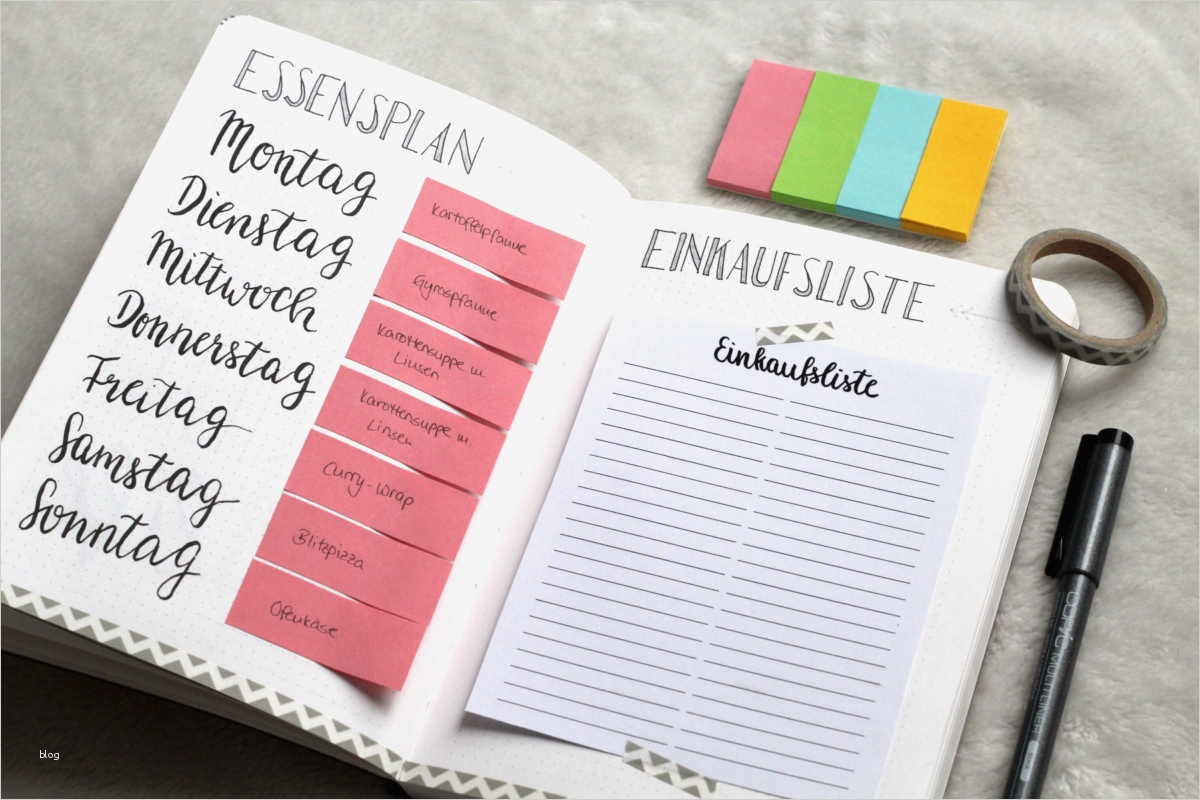 ESSENSPLAN
Montag
Dienstag
Mittwoch
Donnerstag
Freitag
Samstag
Sonntag
Kartoffelpfanne
Gyrospfanne
Karottensuppe m.
Linsen
Karottensuppe m.
Linsen
Curry-Wrap
Blitzpizza
Ofenkäse
EINKAUFSLISTE
Einkaufsliste
COPIC MULTILINER
blog